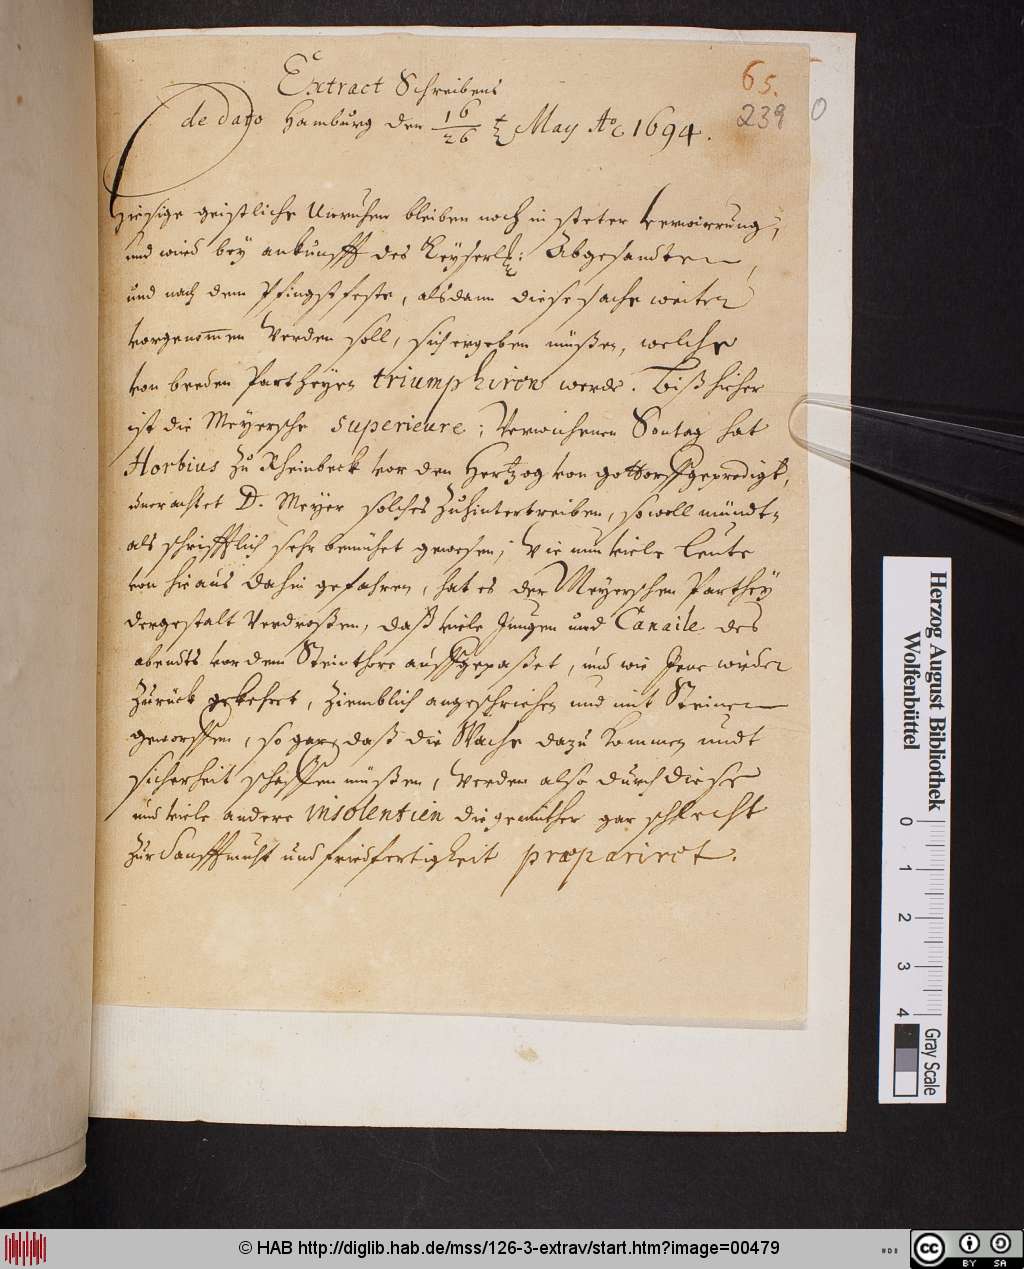 Extract Schreibens
de dato Hamburg den 16/26 May Ao 1694.
65.
239
0
Hiesige geistliche Unruhen bleiben noch in steter verwirrung,
und wird bey ankunfft des Keyserl: Abgesandten,
und nach dem Pfingstfeste, alsdann diese sache weiter
vorgenommen werden soll, sich ergeben müßen, welche
von beeden Partheyen triumphiren werde. Bißhieher
ist die Meyersche superieure; Verwichenen Sontag hat
Horbius zu Rheinbeck vor den Hertzog von Gottorff gepredigt,
unerachtet D. Meyer solches zuhintertreiben, so woll mündt-
als schrifftlich sehr bemühet gewesen; Wie nun viele leute
von hieraus dahin gefahren, hat es der Meyerschen Parthey
dergestalt verdroßen, daß viele Jungen und Canaile des
abendts vor dem Steinthore auffgepaßet, und wie Jene wieder
zurück gekehret, ziemblich angeschriehen und mit Steinen
geworffen, so gar daß die Wache dazu kommen undt
sicherheit schaffen müßen, werden also durch diese
und viele andere insolentien die gemüther gar schlecht
zur Sanfftmuht und friedfertigkeit præpariret.
Herzog August Bibliothek
Wolfenbüttel
0 1 2 3 4
Gray Scale
© HAB http://diglib.hab.de/mss/126-3-extrav/start.htm?image=00479
cc BY SA